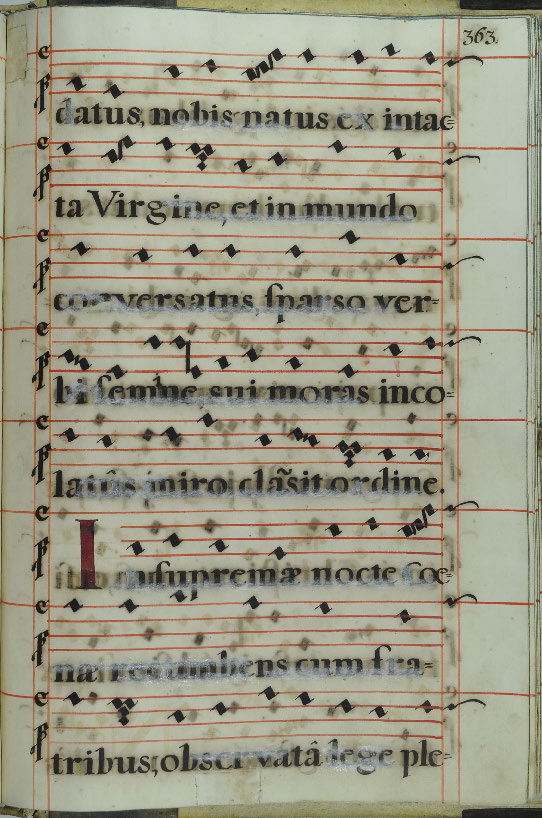 363.
datus, nobis natus ex intac=
ta Virgine, et in mundo
conversatus, sparso ver=
bi semine, sui moras inco=
latûs miro clãsit ordine.
In supremæ nocte Coe=
næ recumbens cum fra=
tribus, observatâ lege ple=